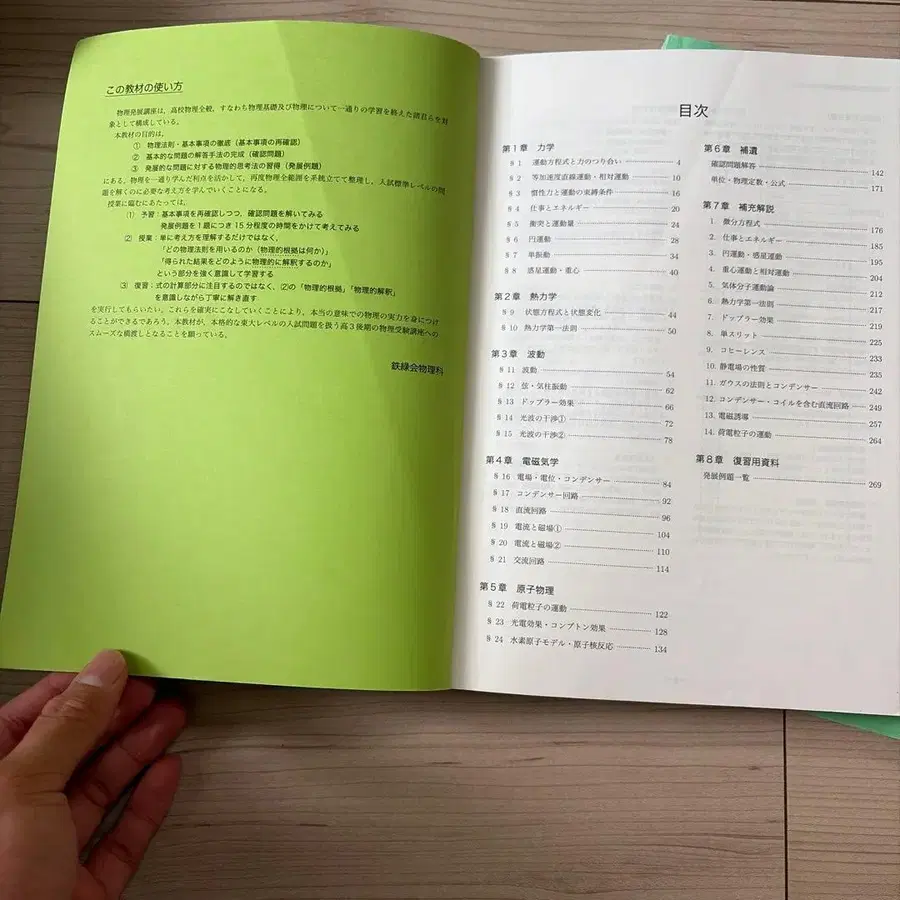 この教材の使い方
物理発展講座は、高校物理全般、すなわち物理基礎及び物理について一通りの学習を終えた諸君らを対
象として構成している。
本教材の目的は,
① 物理法則・基本事項の徹底（基本事項の再確認）
② 基本的な問題の解答手法の完成（確認問題）
③ 発展的な問題に対する物理的思考法の習得（発展例題）
にある。物理を一通り学んだ利点を活かして、再度物理全範囲を系統立てて整理し、入試標準レベルの問
題を解くのに必要な考え方を学んでいくことになる。
授業に臨むにあたっては,
① 予習：基本事項を再確認しつつ、確認問題を解いてみる
発展例題を1題につき15分程度の時間をかけて考えてみる
② 授業：単に考え方を理解するだけではなく,
「どの物理法則を用いるのか（物理的根拠は何か）」
「得られた結果をどのように物理的に解釈するのか」
という部分を強く意識して学習する
③ 復習：式の計算部分に注目するのではなく、②の「物理的根拠」「物理的解釈」
を意識しながら丁寧に解き直す
を実行してもらいたい。これらを確実にこなしていくことにより、本当の意味での物理の実力を身につけ
ることができるであろう。本教材が、本格的な東大レベルの入試問題を扱う高3後期の物理受験講座への
スムーズな橋渡しとなることを願っている。
鉄緑会物理科
目次
第1章 力学
§1 運動方程式と力のつり合い 4
§2 等加速度直線運動・相対運動 10
§3 慣性力と運動の束縛条件 16
§4 仕事とエネルギー 20
§5 衝突と運動量 24
§6 円運動 28
§7 単振動 34
§8 惑星運動・重心 40
第2章 熱力学
§9 状態方程式と状態変化 44
§10 熱力学第一法則 50
第3章 波動
§11 波動 54
§12 弦・気柱振動 62
§13 ドップラー効果 66
§14 光波の干渉① 72
§15 光波の干渉② 78
第4章 電磁気学
§16 電場・電位・コンデンサー 84
§17 コンデンサー回路 92
§18 直流回路 96
§19 電流と磁場① 104
§20 電流と磁場② 110
§21 交流回路 114
第5章 原子物理
§22 荷電粒子の運動 122
§23 光電効果・コンプトン効果 128
§24 水素原子モデル・原子核反応 134
第6章 補遺
確認問題解答 142
単位・物理定数・公式 171
第7章 補充解説
1. 微分方程式 176
2. 仕事とエネルギー 185
3. 円運動・惑星運動 195
4. 重心運動と相対運動 204
5. 気体分子運動論 212
6. 熱力学第一法則 217
7. ドップラー効果 219
8. 単スリット 225
9. コヒーレンス 233
10. 静電場の性質 235
11. ガウスの法則とコンデンサー 242
12. コンデンサー・コイルを含む直流回路 249
13. 電磁誘導 257
14. 荷電粒子の運動 264
第8章 復習用資料
発展例題一覧 269